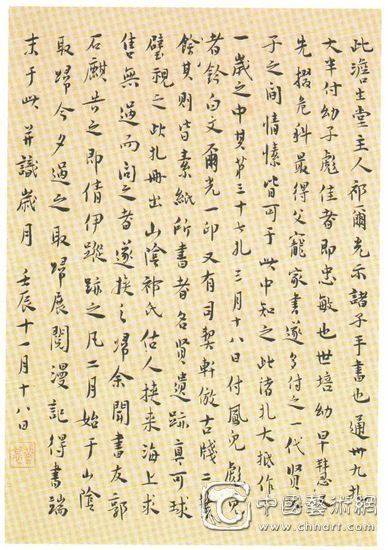 此澹生堂主人祁爾光示諸子手書也通卅九札
大半付幼子彪佳者即忠敏也世培幼早慧
先掇危科最得父寵家書遂多付之一代賢
子之間情愫皆可于此中知之此諸札大抵作
一歲之中其第三十七札三月十八日付鳳兒彪兒
者鈐白文爾光一印又有司契軒倣古牋二
餘其則皆素紙所書者名賢遺跡真可球
璧視之此札冊出山陰祁氏估人挾來海上求
售無過而問之者遂挾之歸余聞書友郭
石麒告之即倩伊蹤跡之凡二月始于山陰
取歸今夕過之取歸展閱漫記得書端
末于此并識歲月 壬辰十一月十八日
中國藝術網
www.chnart.com